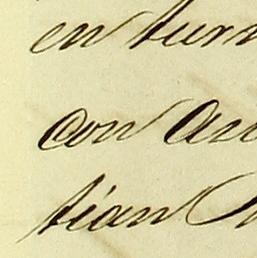 en turn
con an
tian